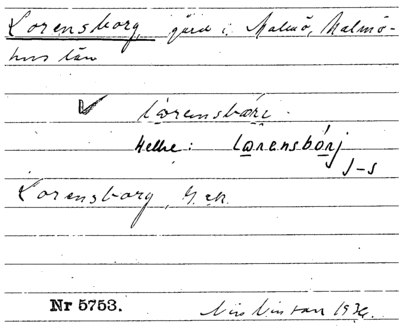 Lorensborg, gård i Malmö, Malmö-
hus län
✓ lo̲rensbo̲rj.
Helhe: lo̲rensbórj
J-s
Lorensborg, G.ek.
Nr 5753.
1934.